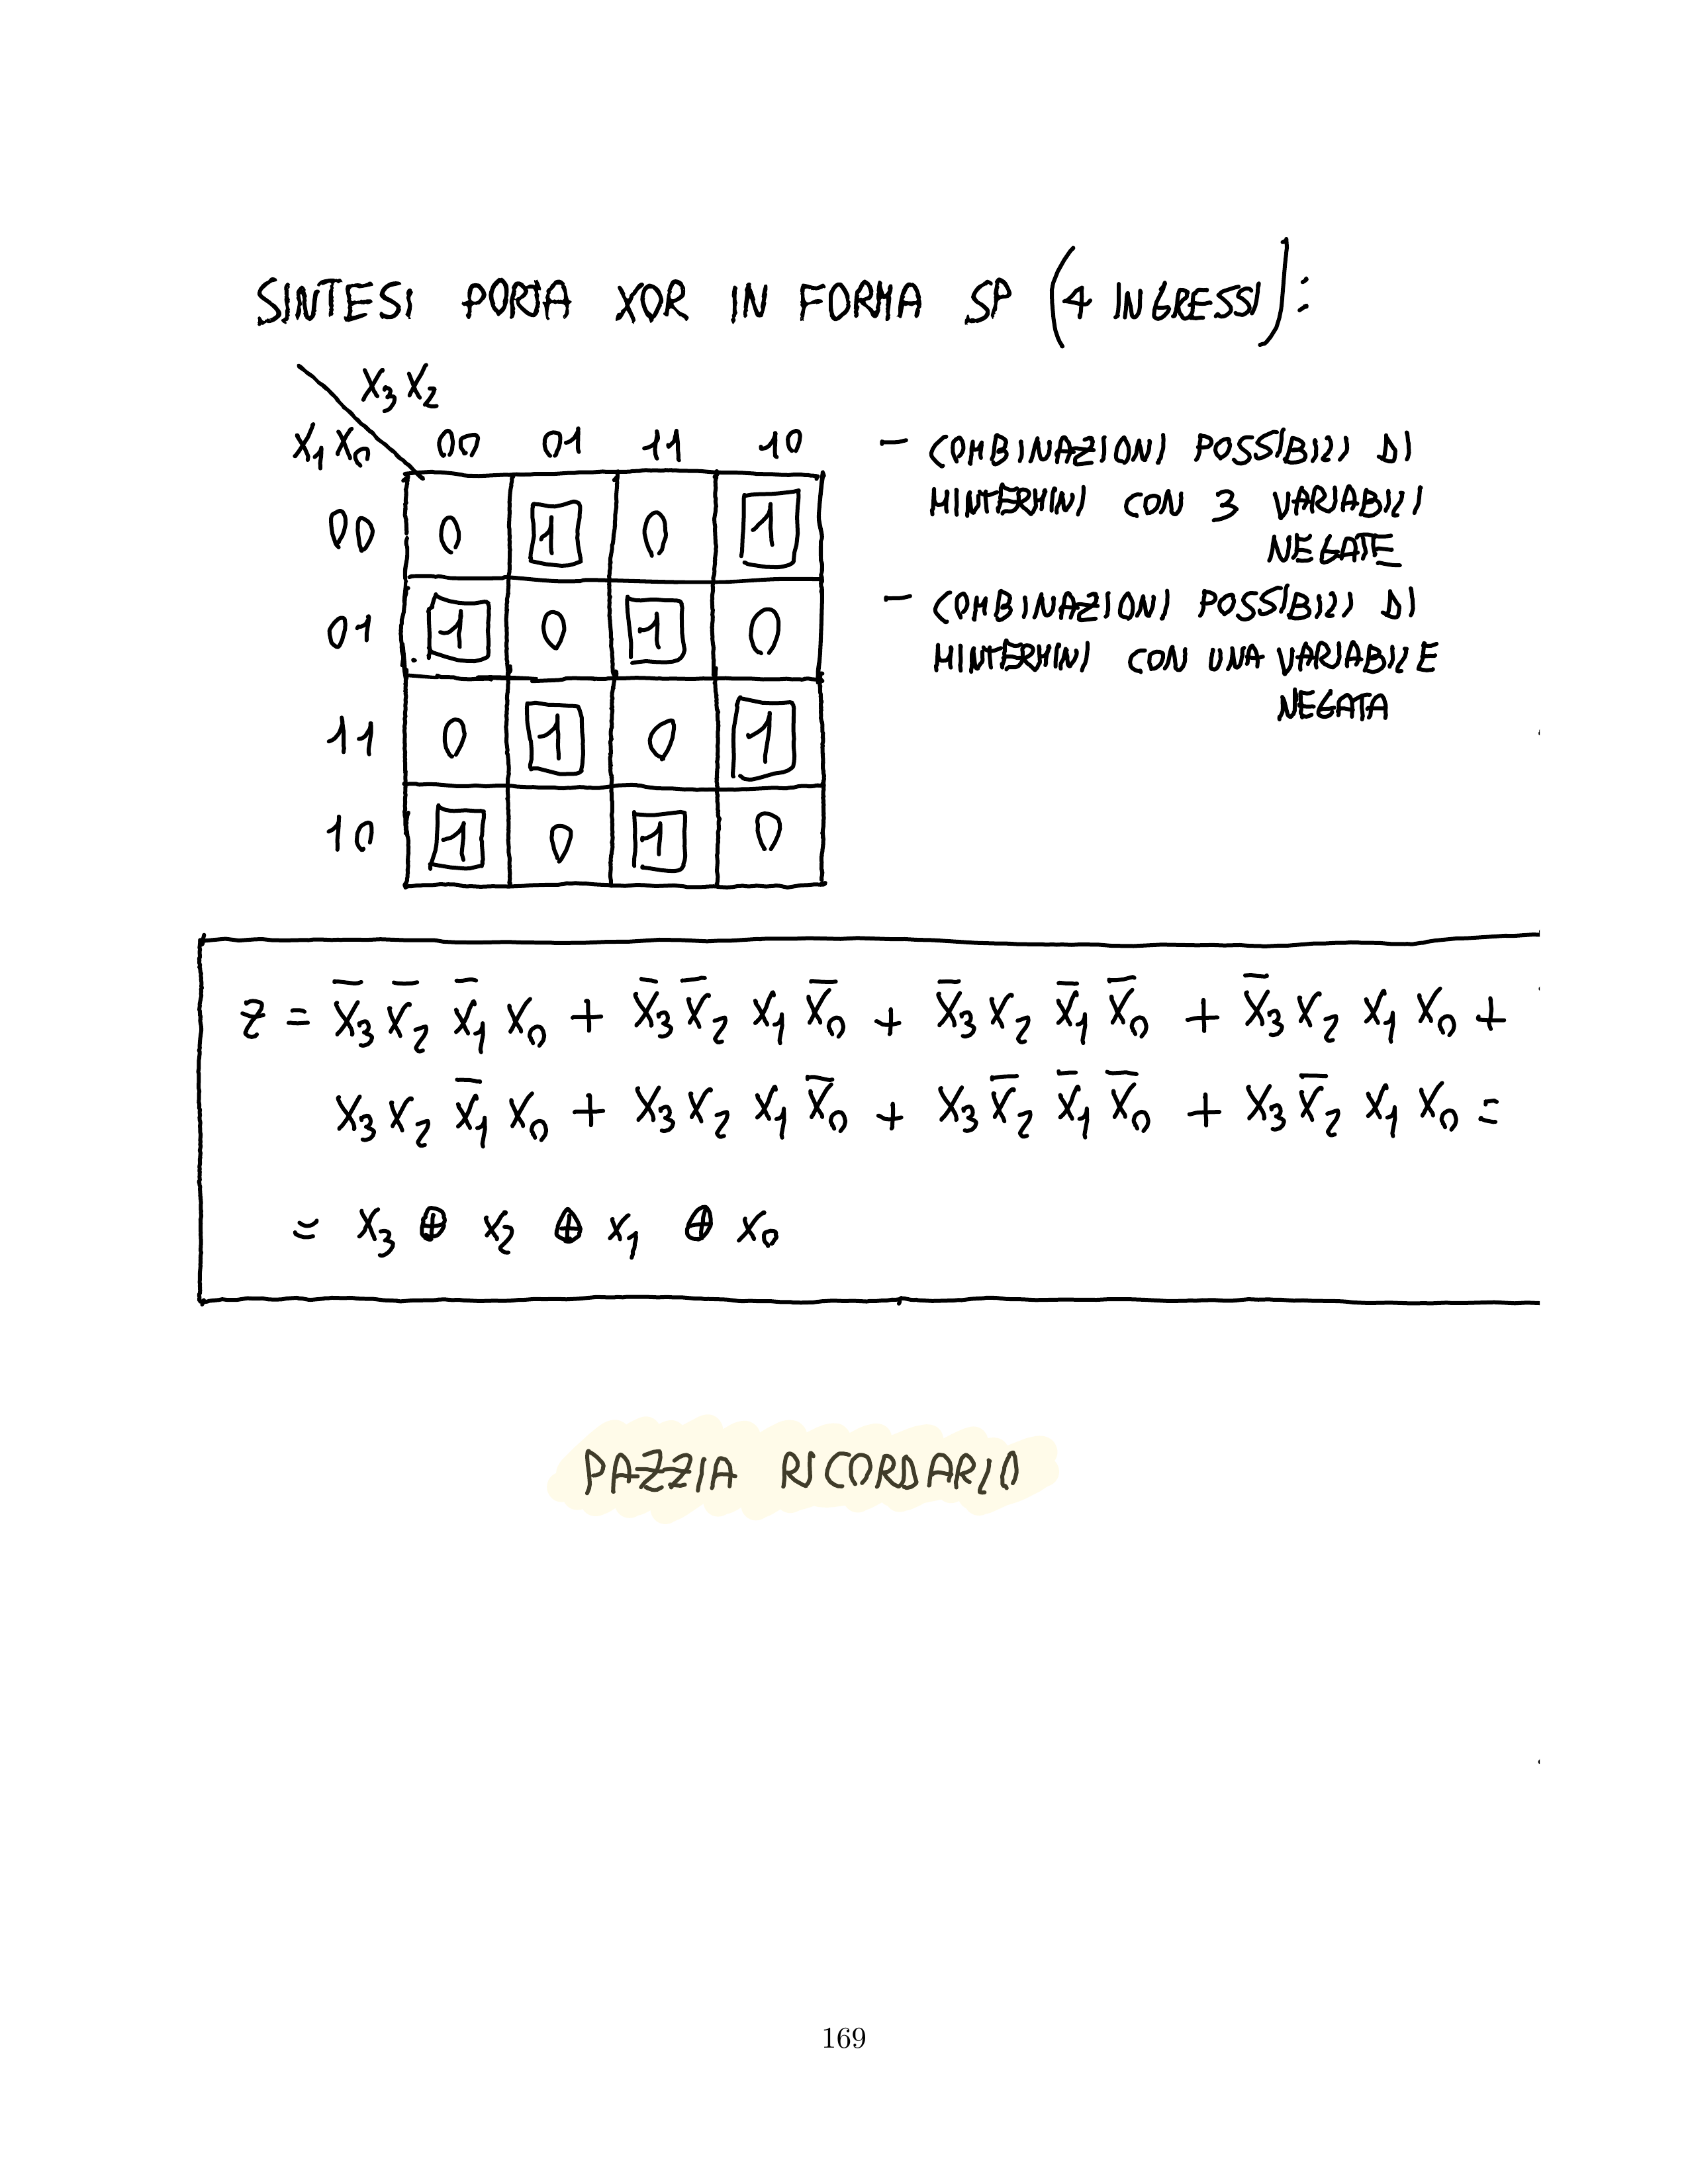 SINTESI PORTA XOR IN FORMA SP (4 INGRESSI):
X₃ X₂
X₁ X₀ 00 01 11 10
00 0 1 0 1
01 1 0 1 0
11 0 1 0 1
10 1 0 1 0
- COMBINAZIONI POSSIBILI DI
MINTERMINI CON 3 VARIABILI
NEGATE
- COMBINAZIONI POSSIBILI DI
MINTERMINI CON UNA VARIABILE
NEGATA
Z = X̅₃ X̅₂ X̅₁ X₀ + X̅₃ X̅₂ X₁ X̅₀ + X̅₃ X₂ X̅₁ X̅₀ + X̅₃ X₂ X₁ X₀ +
X₃ X₂ X̅₁ X₀ + X₃ X₂ X₁ X̅₀ + X₃ X̅₂ X̅₁ X̅₀ + X₃ X̅₂ X₁ X₀ =
= X₃ ⊕ X₂ ⊕ X₁ ⊕ X₀
PAZZIA RICORDARLO
169